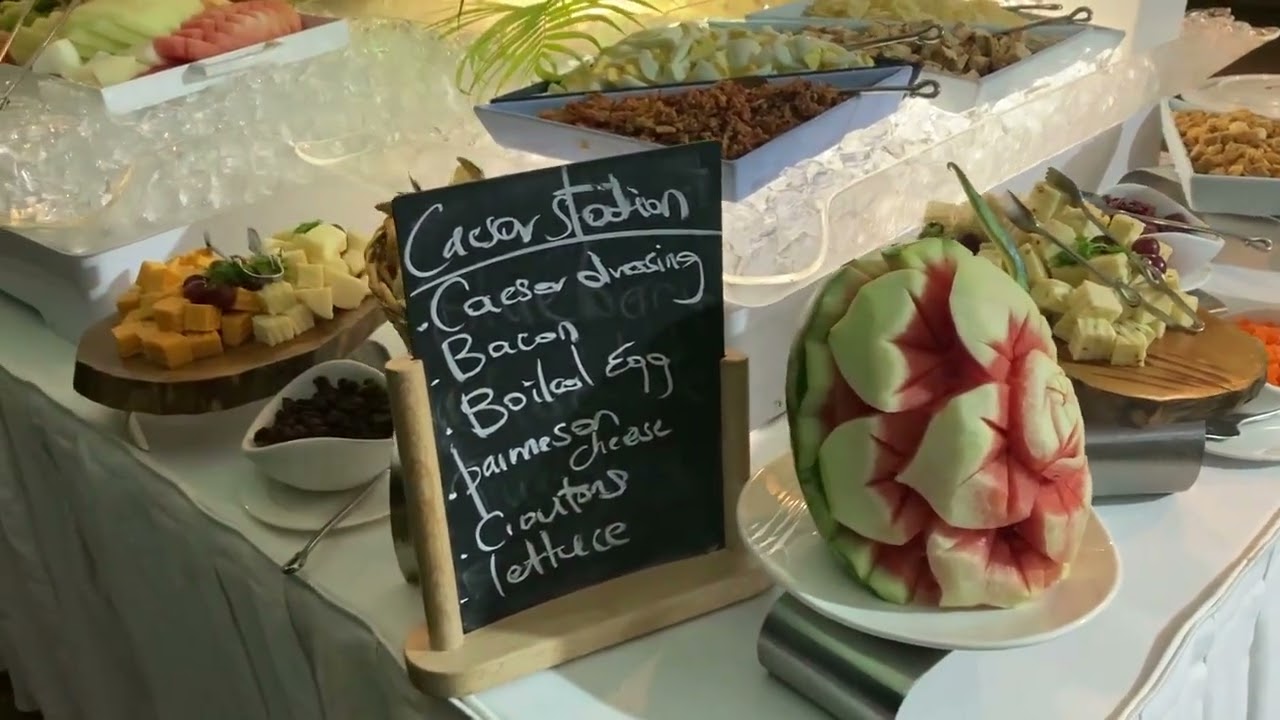 Caesar station
. Caeser dressing
. Bacon
. Boiled Egg
. parmeson
cheese
. Croutons
- lettuce